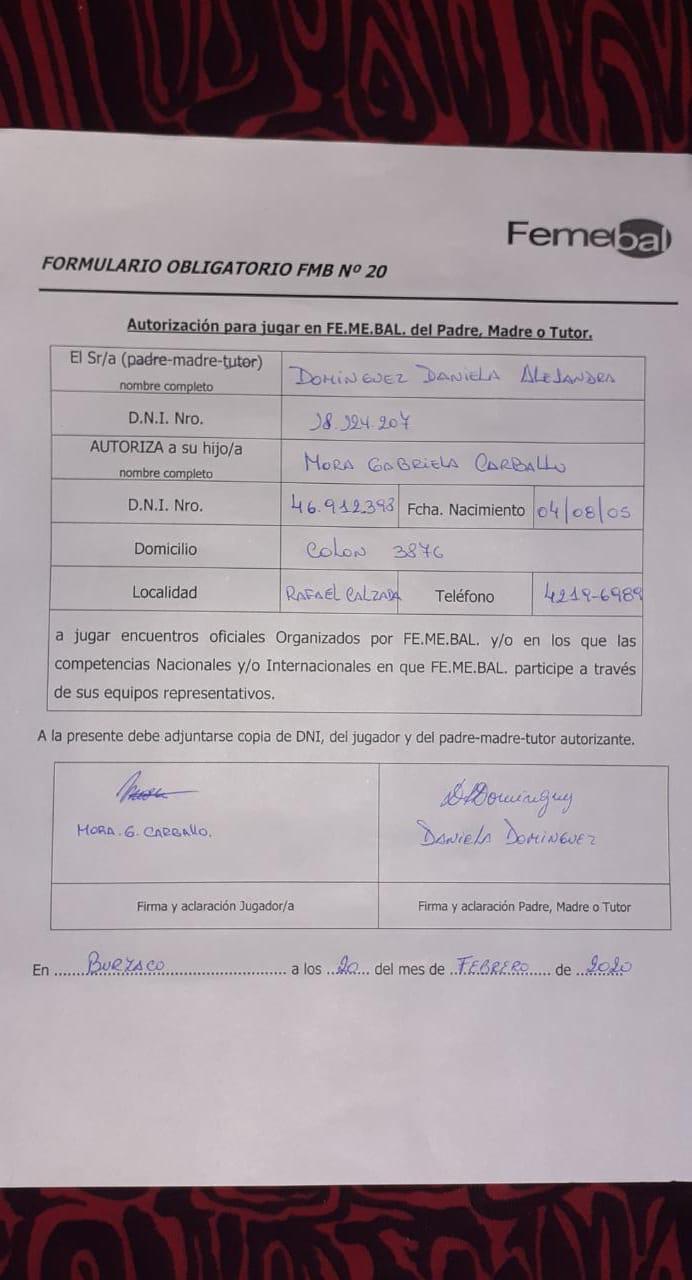 Femebal
FORMULARIO OBLIGATORIO FMB Nº 20
Autorización para jugar en FE.ME.BAL. del Padre, Madre o Tutor.
El Sr/a (padre-madre-tutor) DOMINGUEZ DANIELA ALEJANDRA
nombre completo
D.N.I. Nro.
AUTORIZA a su hijo/a MORA GABRIELA CARBALLO
nombre completo
D.N.I. Nro. 46.912.393 Fcha. Nacimiento 04/08/05
Domicilio COLON 3876
Localidad RAFAEL CALZADA Teléfono 4219-6989
a jugar encuentros oficiales Organizados por FE.ME.BAL. y/o en los que las
competencias Nacionales y/o Internacionales en que FE.ME.BAL. participe a través
de sus equipos representativos.
A la presente debe adjuntarse copia de DNI, del jugador y del padre-madre-tutor autorizante.
DADominguez
MORA.G. CARBALLO. DANIELA DOMINGUEZ
Firma y aclaración Jugador/a Firma y aclaración Padre, Madre o Tutor
En ......BURZACO............................ a los ..20... del mes de ..FEBRERO..... de ..2020